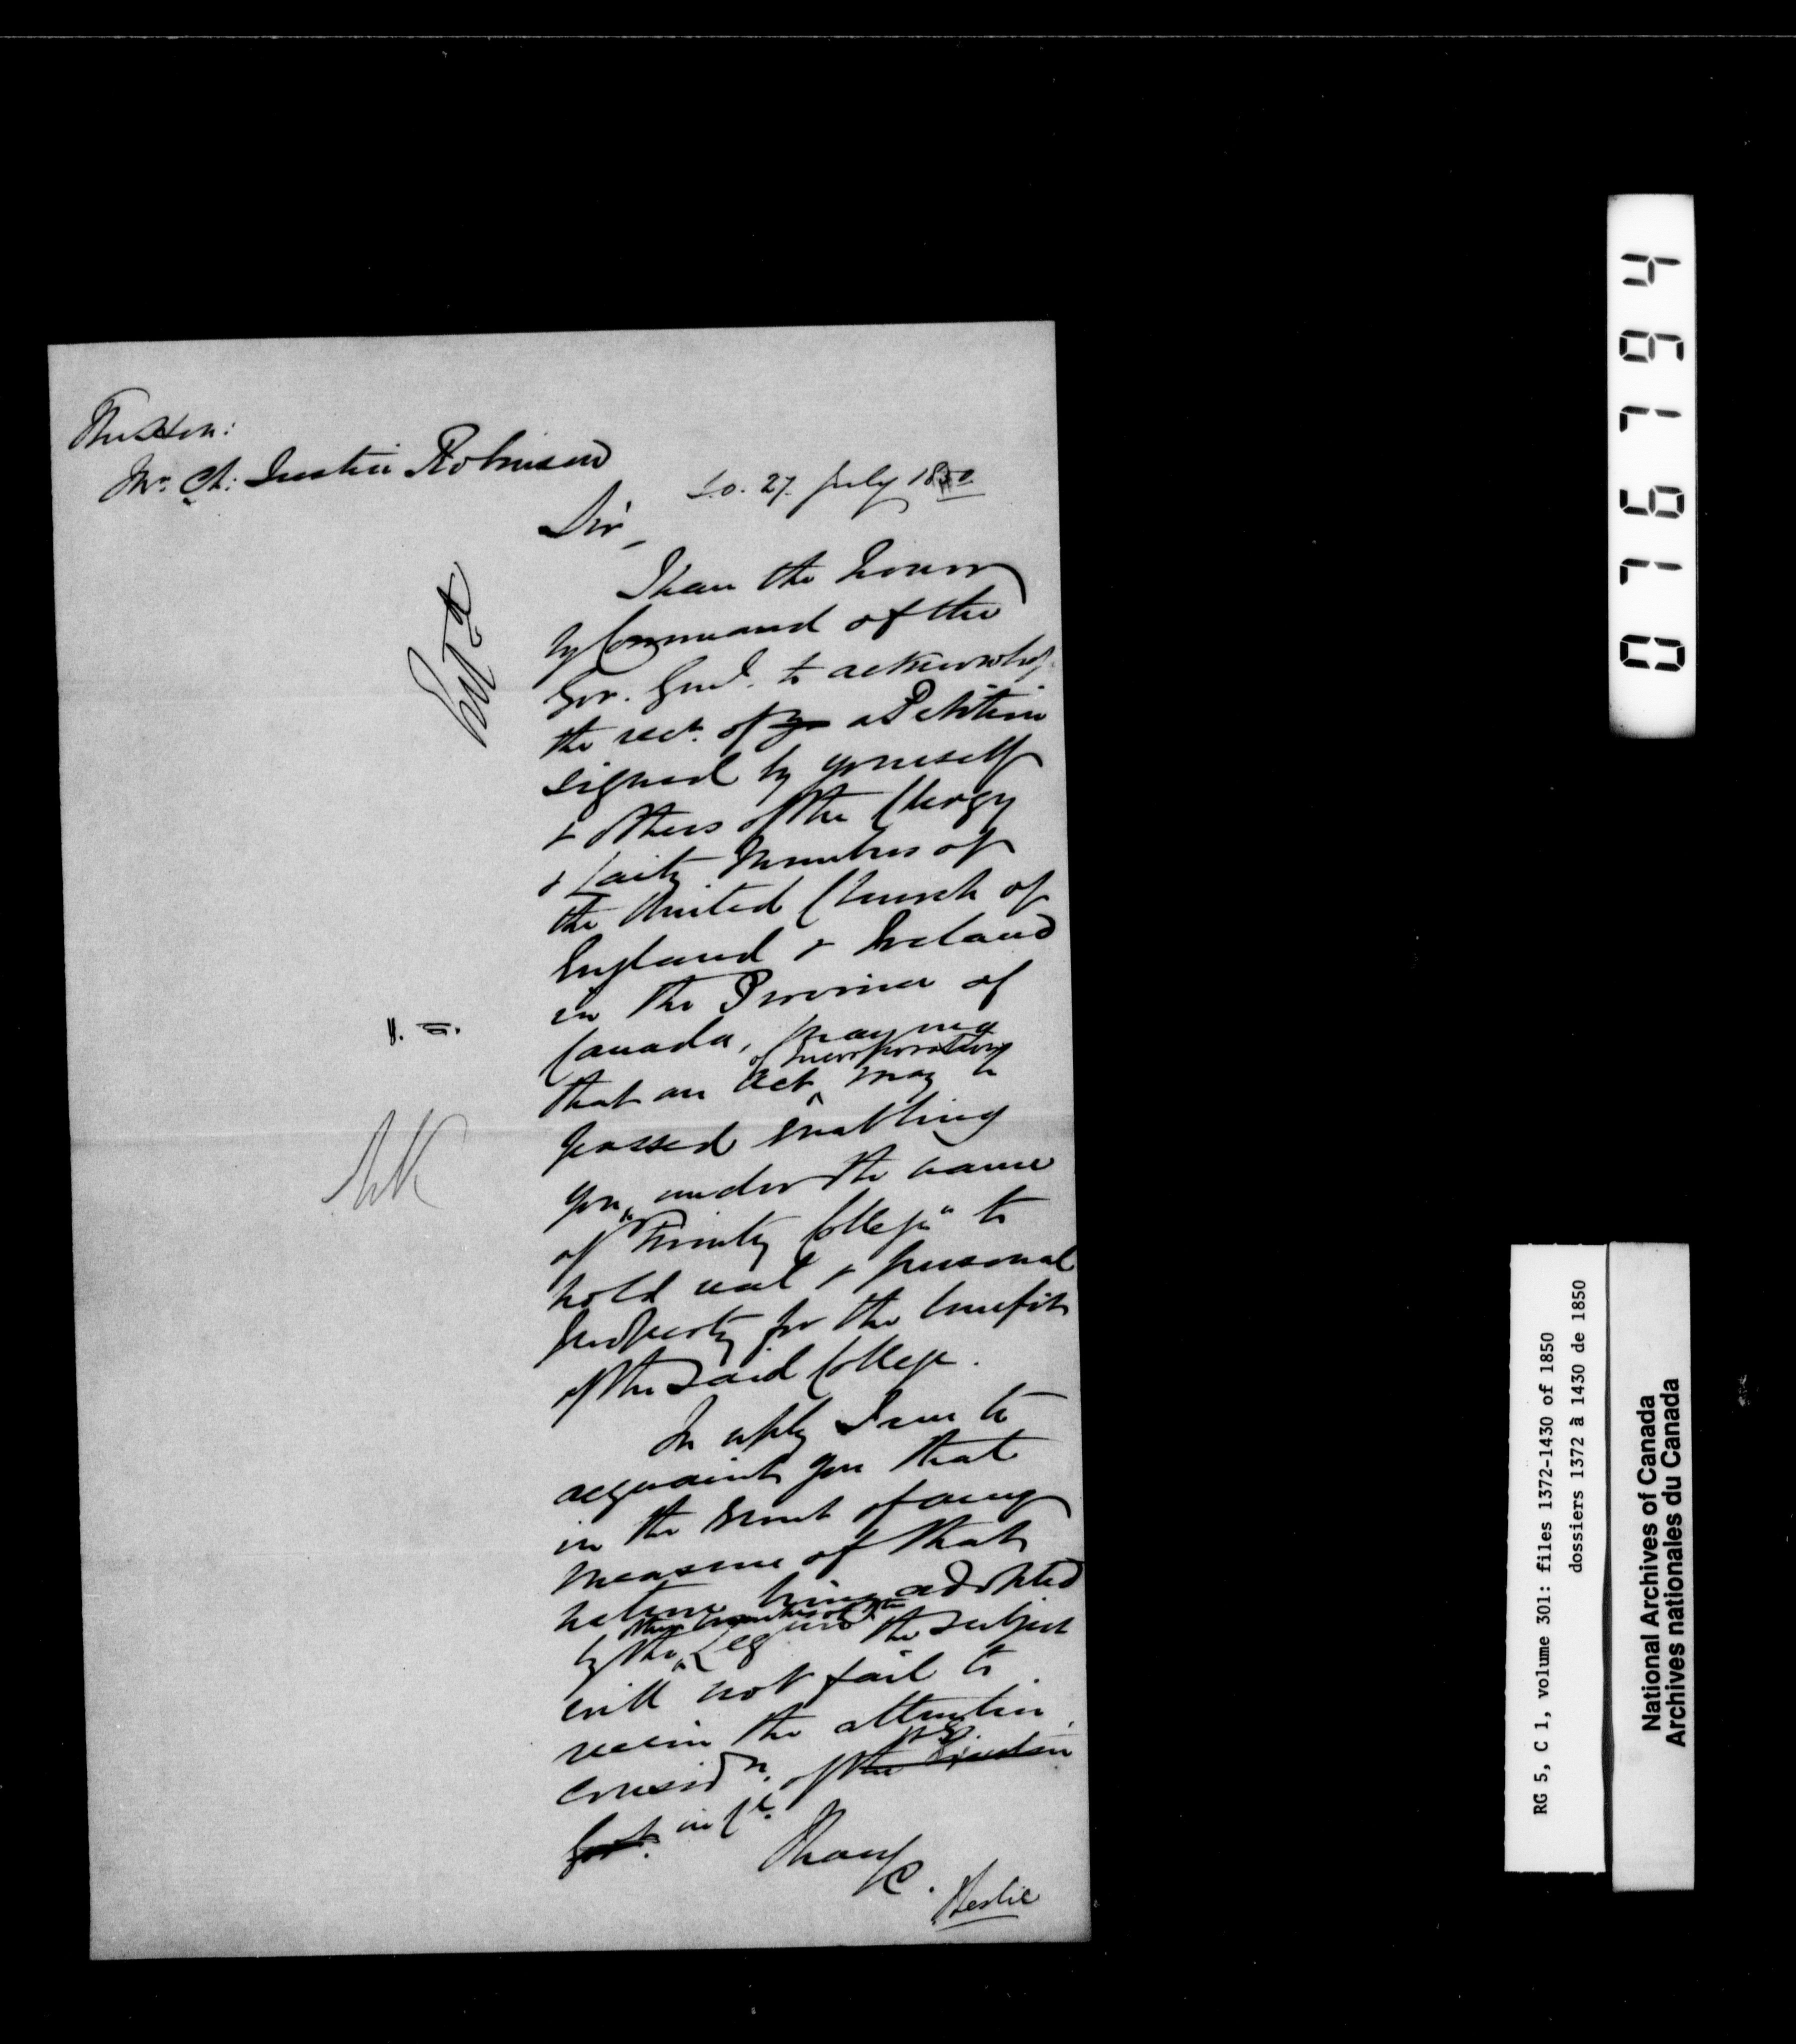 The Hon:
Mr. Ch: Justice Robinson
S.O. 27. July 1850
Sir,
I have the honor
by Command of the
Gov. Genl. to acknowledge
the rect. of yr a Petition
signed by yourself
& others of the Clergy
& Laity Members of
the United Church of
England & Ireland
in the Province of
Canada, praying
that an Act of Incorporation may be
passed enabling
you, under the name
of "Trinity College" to
hold real & personal
property for the benefit
of the said College.
In reply I am to
acquaint you that
in the event of any
measure of that
nature being adopted
by the other branches of the Leg the subject
will not fail to
receive the attentive
considn. of the
Govt. in Cl.
I have
&c.
J Leslie
NK
076794
RG 5, C 1, volume 301: files 1372-1430 of 1850
dossiers 1372 à 1430 de 1850
National Archives of Canada
Archives nationales du Canada